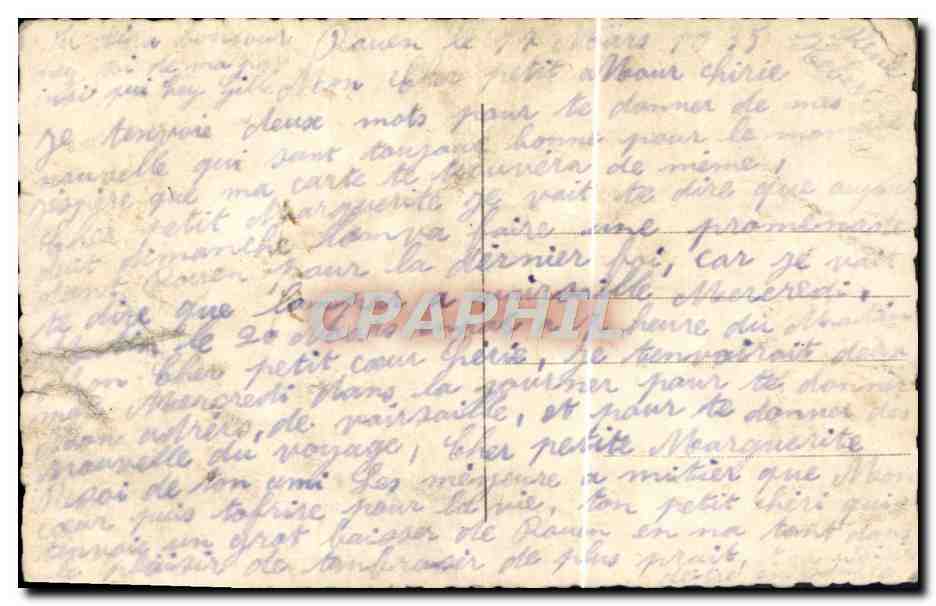 bonjour Rouen le Mars 1935
Mon Cher petit aMour chirie
je tenvoie deux mots pour te donner de mes
nouvelle qui sont toujour bonne pour le moment
jespère que ma carte te trouvera de même,
Cher petit Marguerite je vait te dire que aujour
duit dimanche lonva faire une promenade
dant Rouen, pour la dernier foi, car je vait
te dire que lonpar a vairsaille Mercredi,
le 20 Mars heure du Matin
Mon Cher petit cœur cherie, je tenvairait deux
mot Mercredi dans la journer pour te donner
mon adrèrs, de vairsaille, et pour te donner des
nouvelle du voyage, Cher petite Marguerite
Resoi de ton ami les méyeure a mitier que Mon
cœur puis tofrire pour la vie, ton petit chéri qui
tenvoi un grot baisser de Rouen en na tant dant
le plaisir de tenbrasir de plus prait,
CPAPHIL